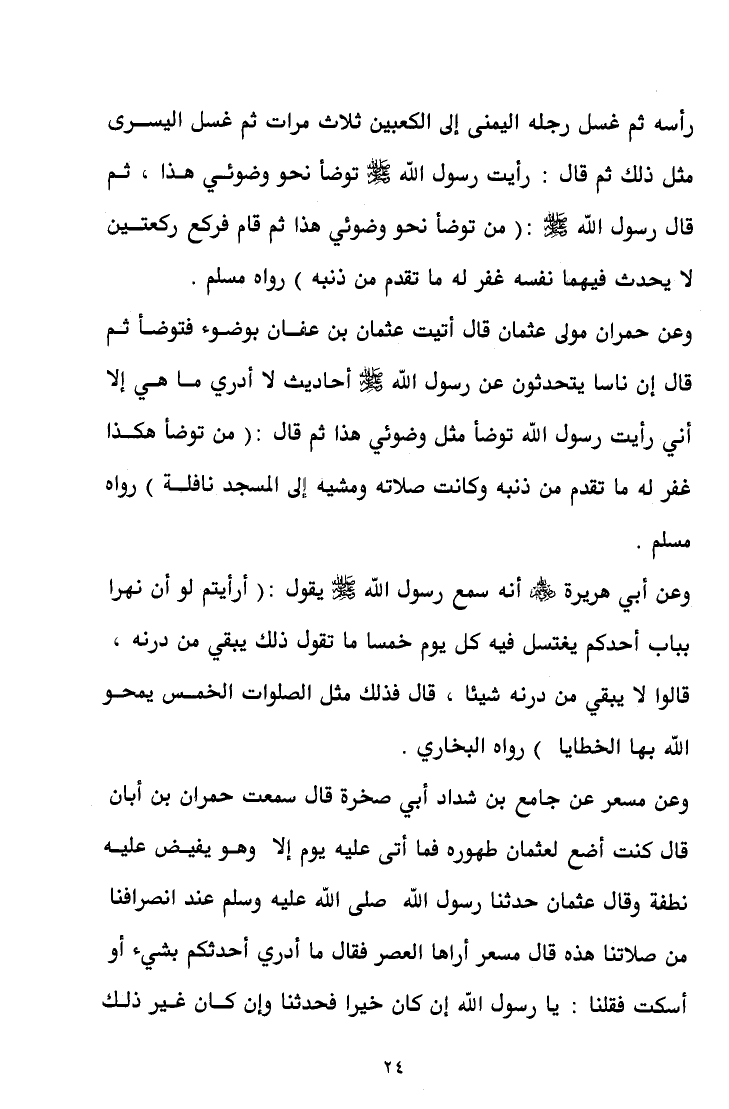 رأسه ثم غسل رجله اليمنى إلى الكعبين ثلاث مرات ثم غسل اليسرى
مثل ذلك ثم قال : رأيت رسول الله ﷺ توضأ نحو وضوئي هذا ، ثم
قال رسول الله ﷺ :( من توضأ نحو وضوئي هذا ثم قام فركع ركعتين
لا يحدث فيهما نفسه غفر له ما تقدم من ذنبه ) رواه مسلم .
وعن حمران مولى عثمان قال أتيت عثمان بن عفان بوضوء فتوضأ ثم
قال إن ناسا يتحدثون عن رسول الله ﷺ أحاديث لا أدري ما هي إلا
أني رأيت رسول الله توضأ مثل وضوئي هذا ثم قال :( من توضأ هكذا
غفر له ما تقدم من ذنبه وكانت صلاته ومشيه إلى المسجد نافلة ) رواه
مسلم .
وعن أبي هريرة رضي الله عنه أنه سمع رسول الله ﷺ يقول :( أرأيتم لو أن نهرا
بباب أحدكم يغتسل فيه كل يوم خمسا ما تقول ذلك يبقي من درنه ،
قالوا لا يبقي من درنه شيئا ، قال فذلك مثل الصلوات الخمس يمحو
الله بها الخطايا ) رواه البخاري .
وعن مسعر عن جامع بن شداد أبي صخرة قال سمعت حمران بن أبان
قال كنت أضع لعثمان طهوره فما أتى عليه يوم إلا وهو يفيض عليه
نطفة وقال عثمان حدثنا رسول الله صلى الله عليه وسلم عند انصرافنا
من صلاتنا هذه قال مسعر أراها العصر فقال ما أدري أحدثكم بشيء أو
أسكت فقلنا : يا رسول الله إن كان خيرا فحدثنا وإن كان غير ذلك
٢٤